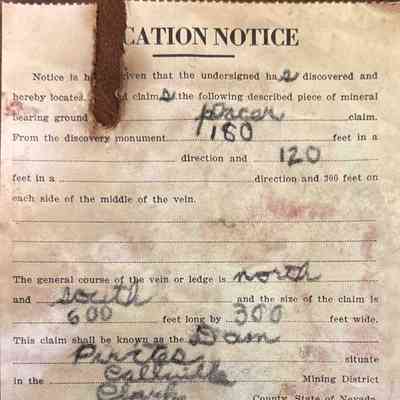 CATION NOTICE
Notice is h given that the undersigned has discovered and
hereby locate d claims the following described piece of mineral
bearing ground placer claim.
From the discovery monument 180 feet in a
direction and 120
feet in a direction and 300 feet on
each side of the middle of the vein.
The general course of the vein or ledge is north
and south and the size of the claim is
600 feet long by 300 feet wide.
This claim shall be known as the Dam
Pirates situate
in the Callville Mining District
Clark County, State of Nevada